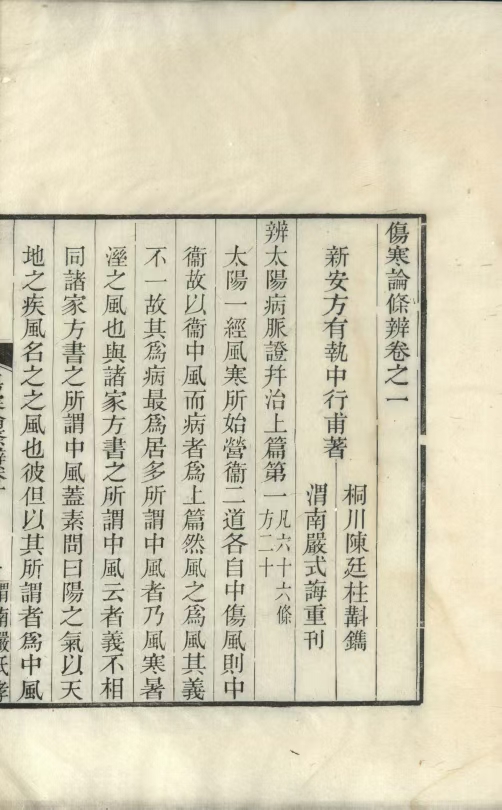 傷寒論條辨卷之一
桐川陳廷柱斠鐫
新安方有執中行甫著
渭南嚴式誨重刊
辨太陽病脈證幷治上篇第一凡六十六條方二十
太陽一經風寒所始營衞二道各自中傷風則中
衞故以衞中風而病者爲上篇然風之爲風其義
不一故其爲病最爲居多所謂中風者乃風寒暑
溼之風也與諸家方書之所謂中風云者義不相
同諸家方書之所謂中風蓋素問曰陽之氣以天
地之疾風名之之風也彼但以其所謂者爲中風